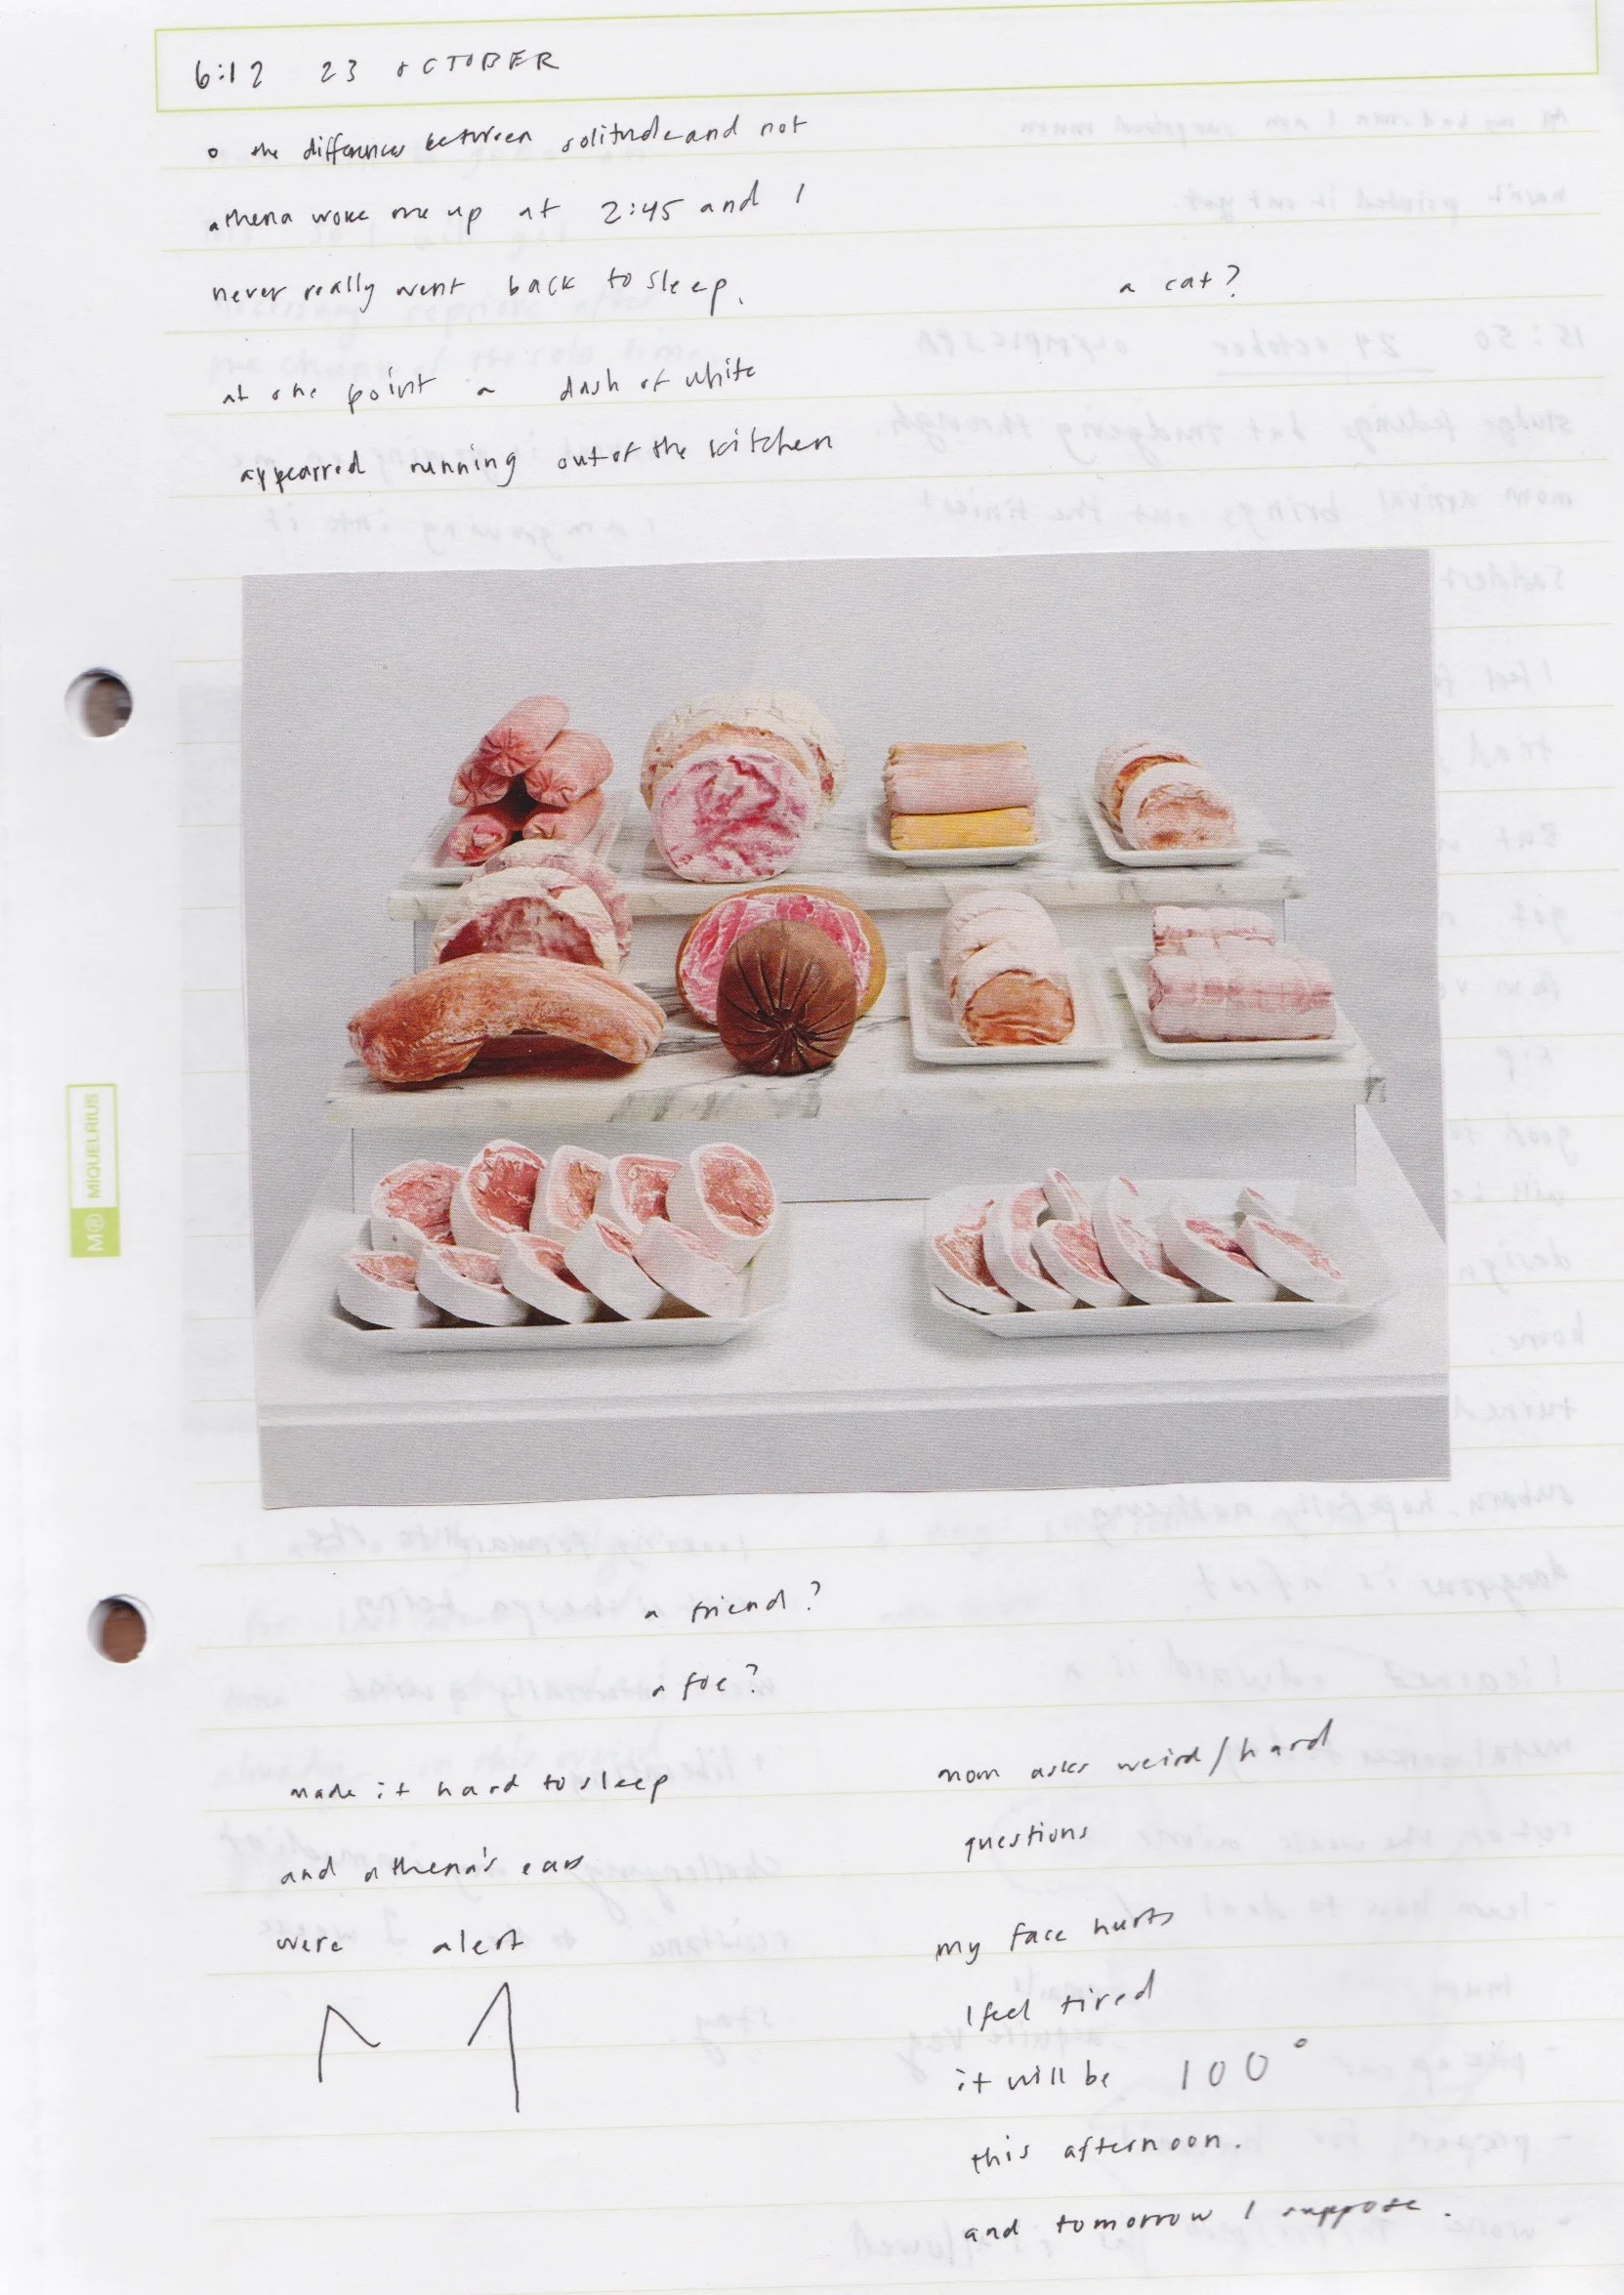 6:12 23 OCTOBER
o the differences between solitude and not
athena woke me up at 2:45 and I
never really went back to sleep.
a cat?
at one point a dash of white
appearred running out of the kitchen
M® MIQUELRIUS
a friend?
a foe?
made it hard to sleep
and athena's ears
were alert
mom asks weird/hard
questions
my face hurts
I feel tired
it will be 100°
this afternoon.
and tomorrow I suppose.